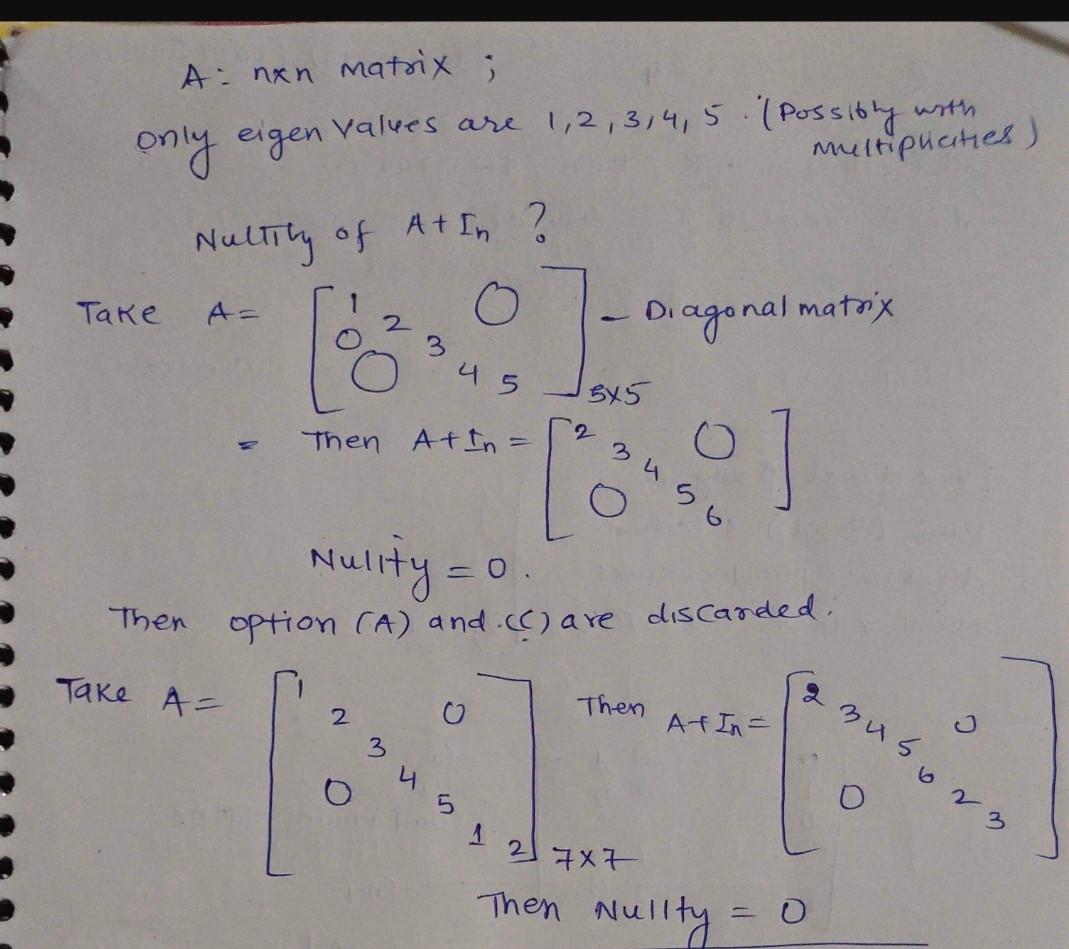 A: nxn matrix ;
only eigen values are 1,2,3,4,5. (Possibly with
multiplicities)
Nullity of A+In ?
Take A= [ 1 2 3 4 5 0 0 0 ] 5x5 - Diagonal matrix
= Then A+In = [ 2 3 4 5 6 0 0 ]
Nullity = 0.
Then option (A) and (C) are discarded.
Take A= [ 1 2 3 4 5 1 2 0 0 ] 7x7 Then A+In = [ 2 3 4 5 6 2 3 0 0 ]
Then Nullty = 0